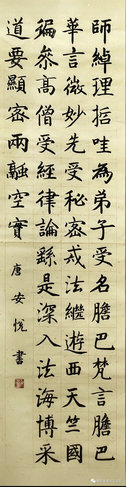 師綽理哲哇為弟子受名膽巴梵言膽巴
華言微妙先受秘密戒法繼遊西天竺國
徧叅高僧受經律論繇是深入法海博采
道要顯密兩融空實
唐安悅書